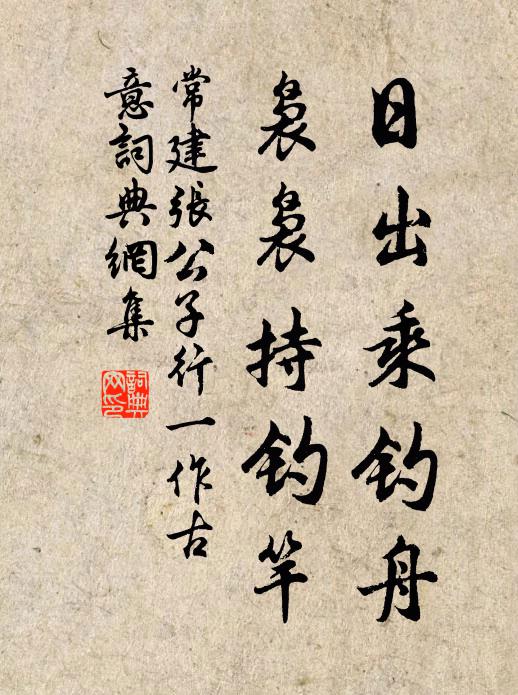 日出乘钓舟
袅袅持钓竿
常建張公子行一作古
意詞典網集
詞典
网印